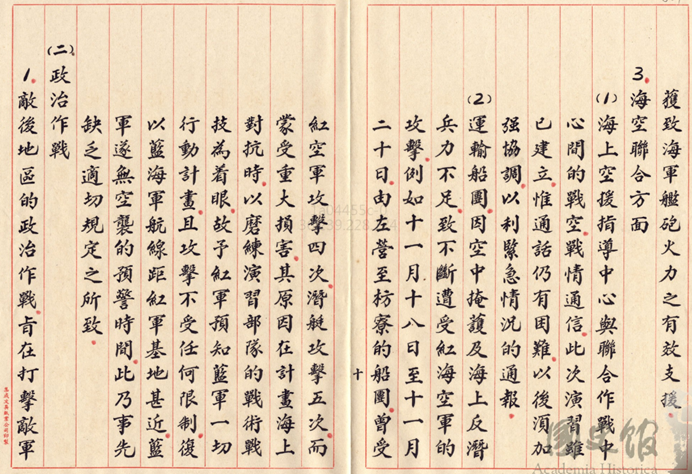 獲致海軍艦砲火力之有效支援。
3.海空聯合方面
(1)海上空援指導中心與聯合作戰中
心間的戰空戰情通信,此次演習雖
已建立惟通話仍有困難,以後須加
強協調,以利緊急情況的通報。
(2)運輸船團,因空中掩護及海上反潛
兵力不足,致不斷遭受紅海空軍的
攻擊,例如十一月十八日至十一月
二十日,由左營至枋寮的船團,曾受
十
紅空軍攻擊四次,潛艇攻擊五次,而
蒙受重大損害,其原因在計畫海上
對抗時,以磨練演習部隊的戰術戰
技為着眼,故予紅軍預知藍軍一切
行動計畫,且攻擊不受任何限制,復
以藍海軍航線距紅軍基地甚近,藍
軍遂無空襲的預警時間,此乃事先
缺乏適切規定之所致。
(二)政治作戰
1.敵後地區的政治作戰,旨在打擊敵軍
國史館
Academia Historica